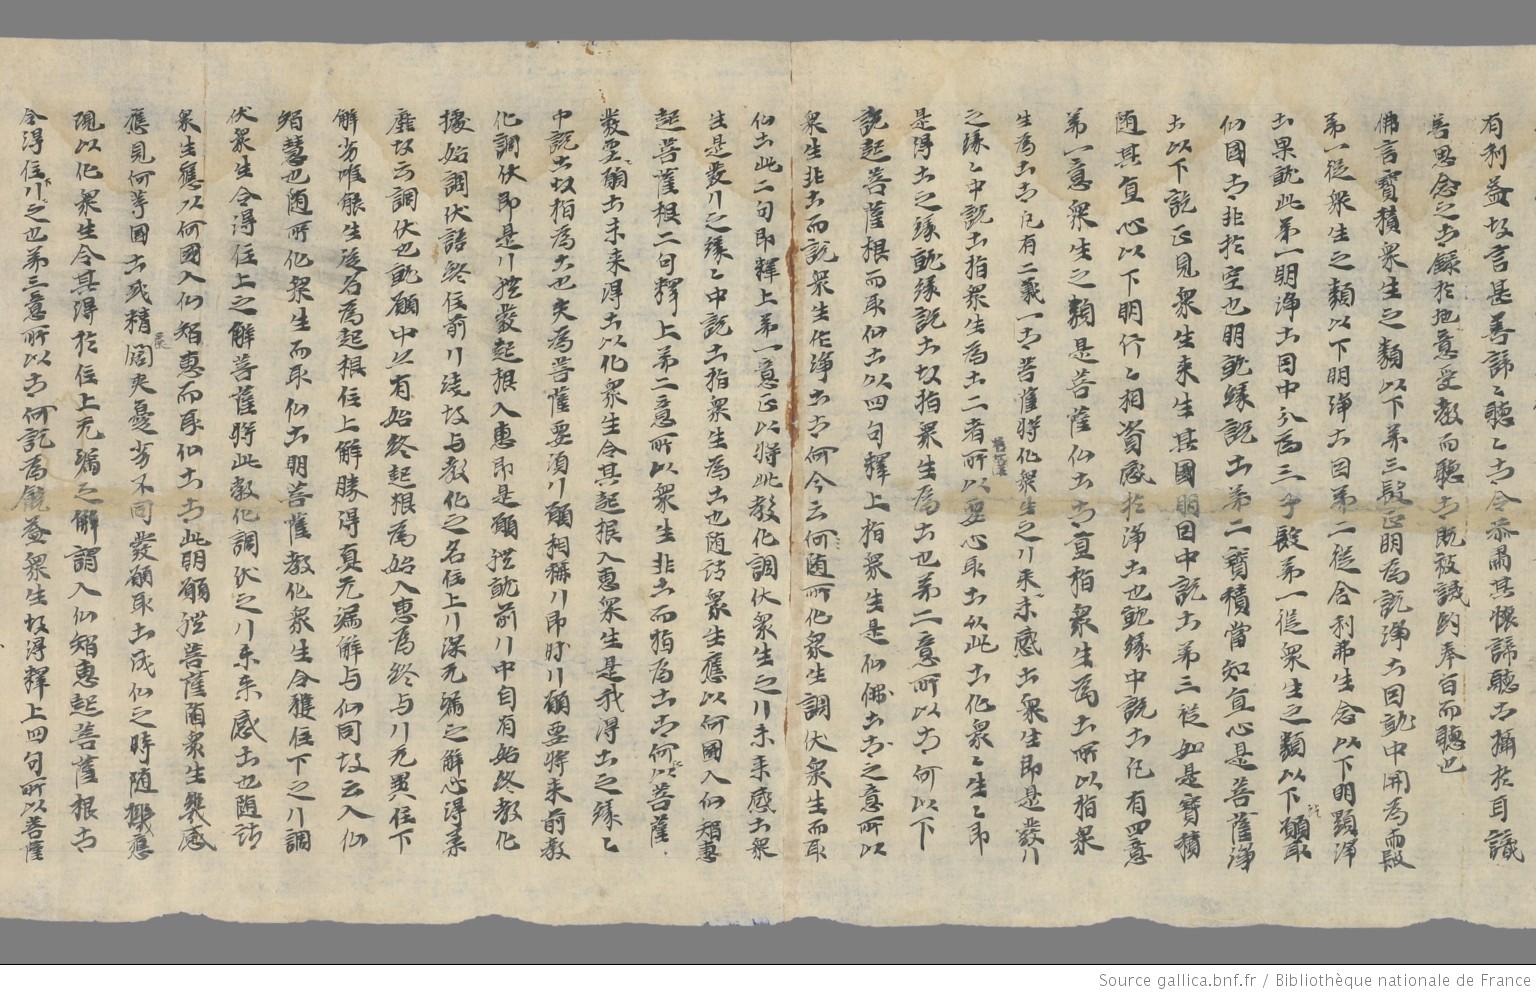 有利益故言甚善諦〻聽〻者令恭肅其懷諦聽者攝於耳識
善思念之者録於地意受教而聽者既被誡約奉旨而聽也
佛言寶積衆生之類以下第三段正明為説淨土因就中開為兩段
第一從衆生之類以下明淨土因第二從舍利弗生念以下明顯淨
土果就此第一明淨土因中分為三子段第一從衆生之類以下
仏國者非於空也明就縁説土第二寶積當知直心是菩薩淨
土以下説正見衆生来生其國明因中説土第三従如是寶積
随其直心以下明行〻相資感於淨土也就縁中説土凡有四意
第一意衆生之類是菩薩仏土者直指衆生為土所以指衆
生為土者凡有二義一者菩薩将化衆生之行来感土衆生即是發行
之縁〻中説土指衆生為土二者所以要心取土以此土化衆〻生〻即
是得土之縁就縁説土故指衆生為土也第二意所以者何以下
説起菩薩根而取仏土以四句釋上指衆生是仏佛土者之意所以
衆生非土而説衆生作淨土者何今云何随所化衆生調伏衆生而取
仏土此二句即釋上第一意正以将此教化調伏衆生之行来感土衆
生是發行之縁〻中説土指衆生為土也随諸衆生應以何國入仏智惠
起菩薩根二句釋上第二意所以衆生非土而指為土者何以菩薩
發要願土未来得土以化衆生令其起根入惠衆生是我得土之縁〻
中説土故指為土也夫為菩薩要須行願相扶行即時行願要将来前教
化調伏即是行體發起根入惠即是願體就前行中自有始終教化
據始調伏語終住前行淺故与教化之名住上行深无漏之解心得柔
靡故云調伏也就願中亦有始終起根為始入惠為終与行无異住下
解劣唯能生従名為起根住上解勝得真无漏解与仏同故云入仏
智慧也随所化衆生而取仏土明菩薩教化衆生令獲住下之行調
伏衆生令得住上之解菩薩将此教化調伏之行来感土也随諸
衆生應以何國入仏智惠而取仏土者此明願體菩薩随衆生幾感
應見何等國土或精麁夾憂劣不同發願取土成仏之時随機應
現以化衆生令其得於住上无漏之解謂入仏智惠起菩薩根者
令得住下行之也第三意所以者何訖為饒益衆生故得釋上四句所以菩薩